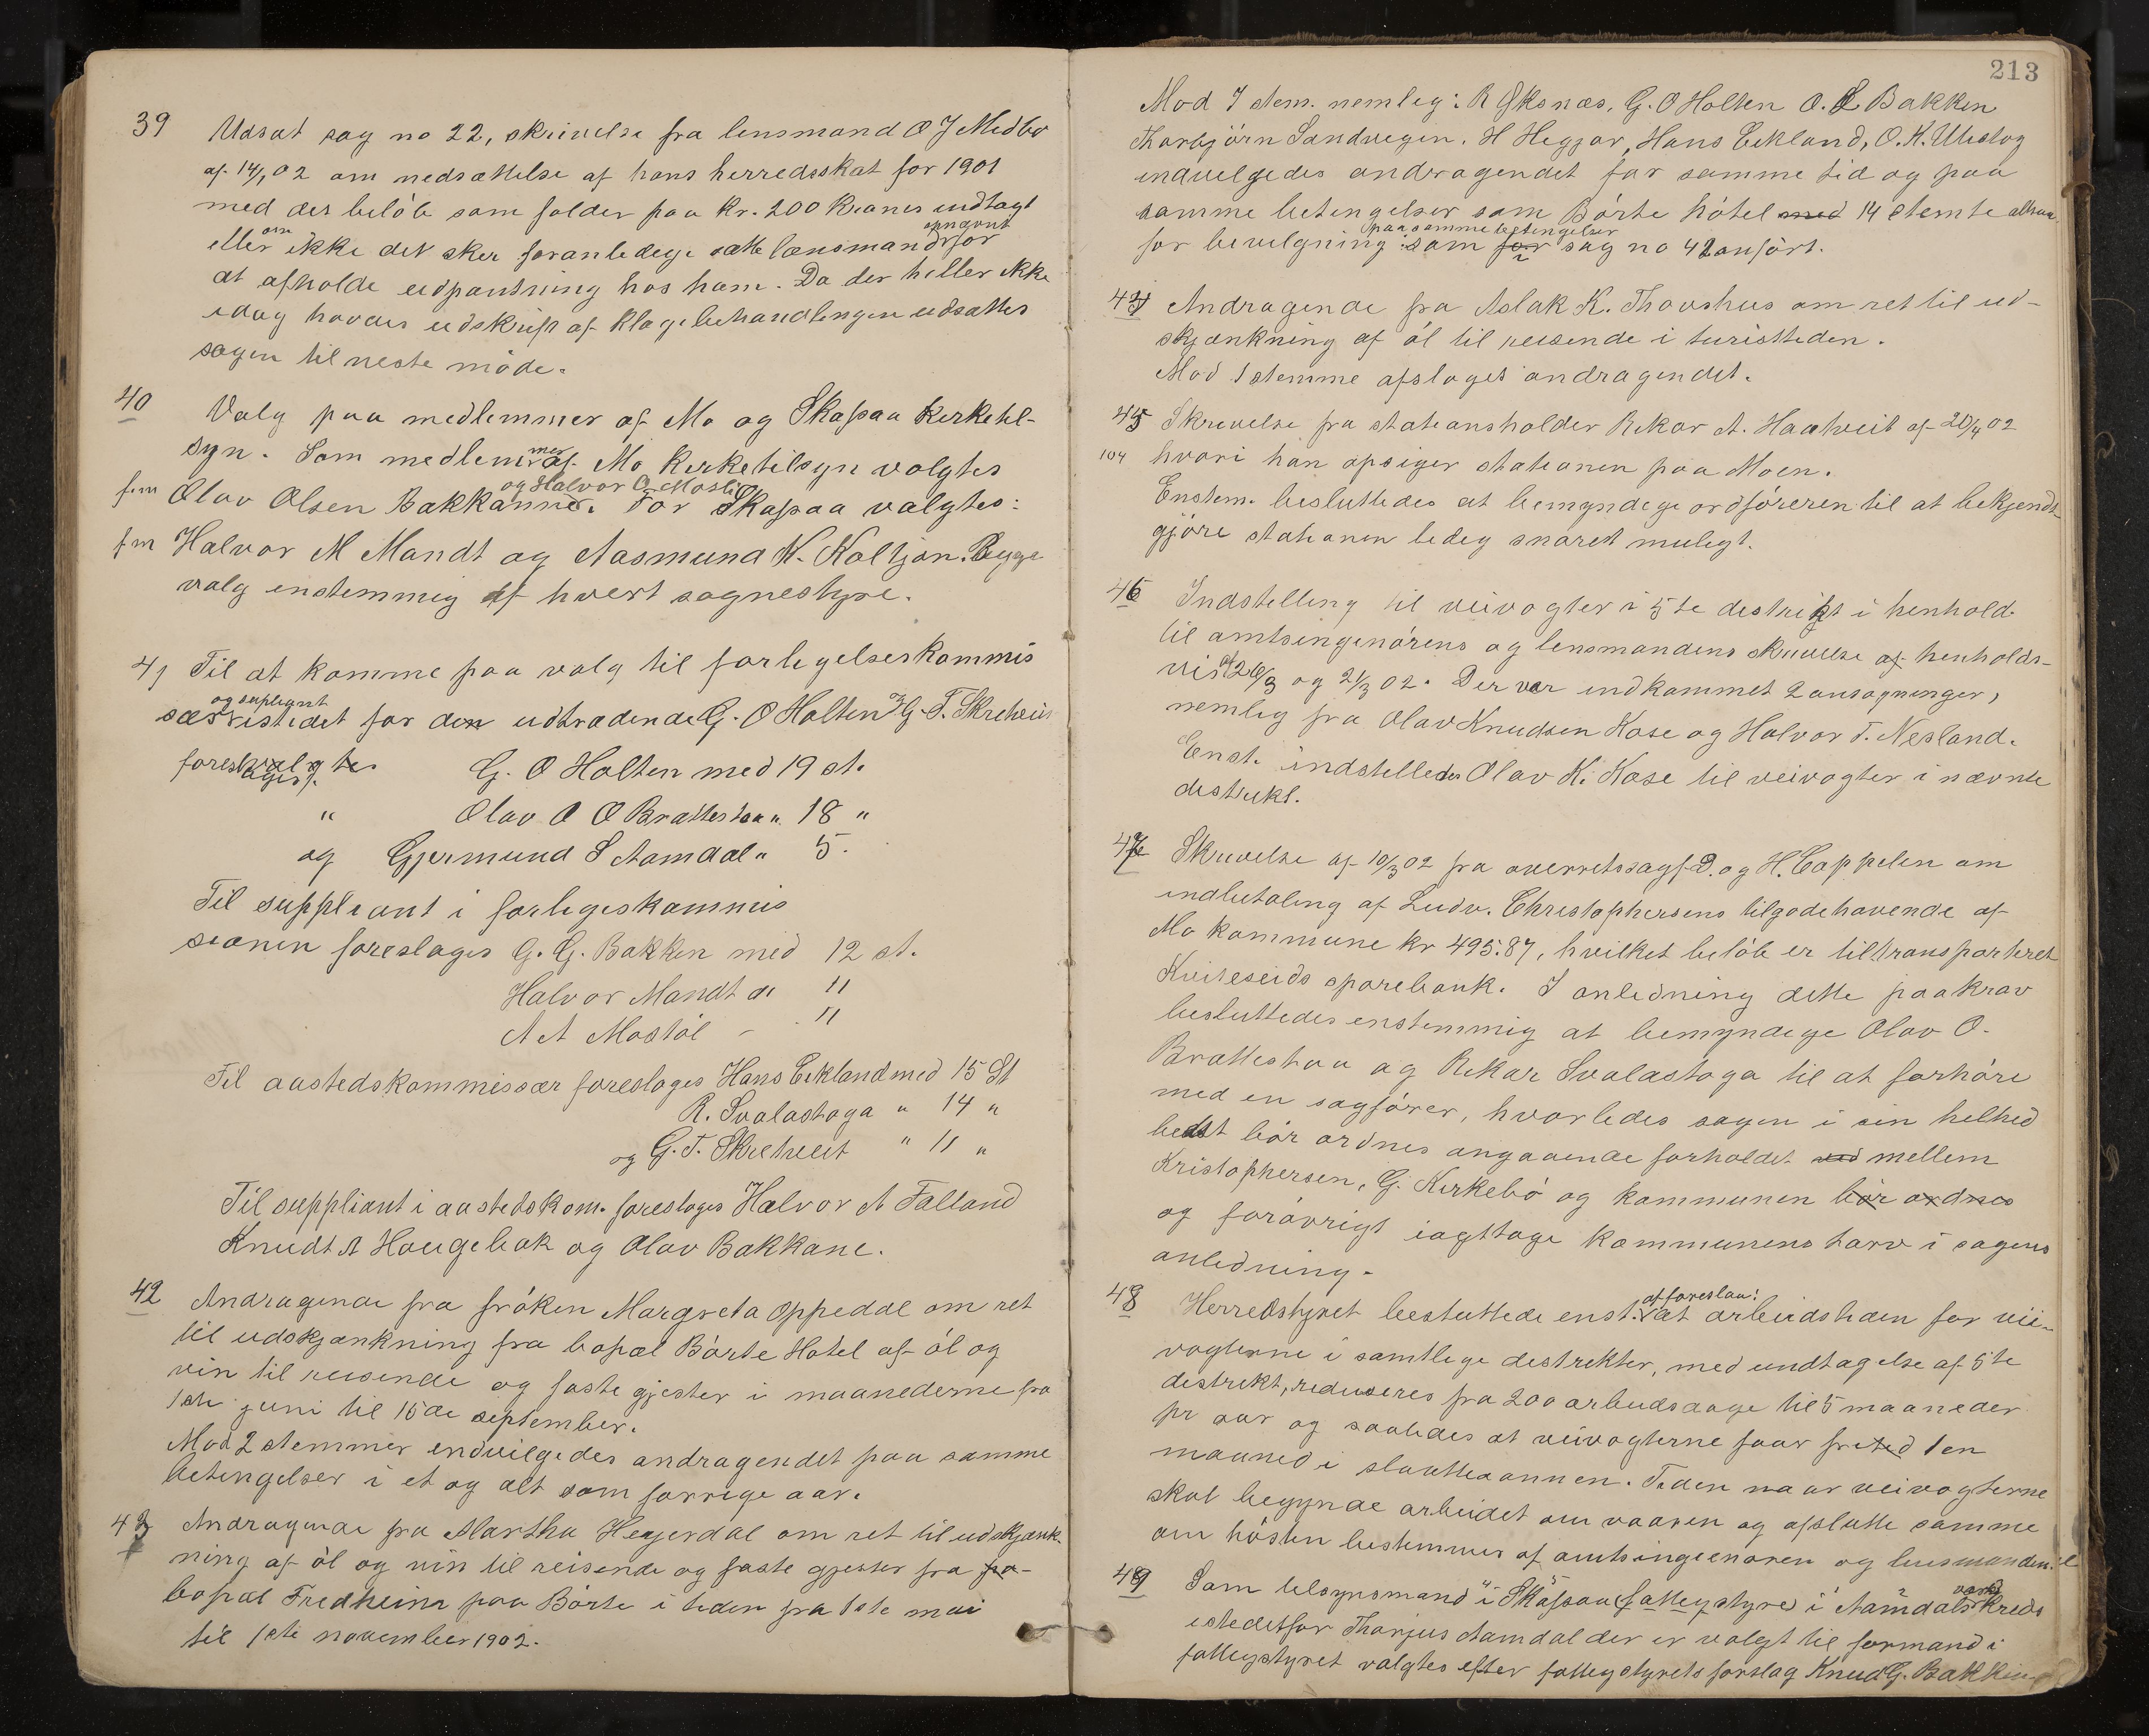 39 Udsat sag no 22, skrivelse fra lensmand O J Medbø
af 14/1 02 om nedsættelse af hans herredsskat for 1901
med det beløb som falder paa kr. 200 kroners indtægt
eller om ikke det sker foranledige sætte lænsmand opnævnt for
at afholde udpantning hos ham. Da der heller ikke
idag havdes udskrift af klagebehandlingen udsattes
sagen til neste møde.
40 Valg paa medlemmer af Mo og Skafsaa kirketil-
syn. Som medlemmer af Mo kirketilsyn valgtes
fm Olav Olsen Bakkanne og Halvor O Mosli. For Skafsaa valgtes:
fm Halvor M Mandt og Aasmund K. Koltjøn. Begge
valg enstemmig af hvert sognestyre.
41 Til at komme paa valg til forligelseskommis
særistedet og supleant for den udtrædende G. O Holten og G. T. Skrehveit
foreslages G. O Holten med 19 st.
" Olav O O Brattestaa " 18 "
og Gjermund S Aamdal " 5.
Til suppleant i forligeskommis
sionen foreslages G. G. Bakken med 12 st.
Halvor Mandt " 11
A A Mostøl - 11
Til aastedskommissær foreslages Hans Eikland med 15 St
R. Svalastoga " 14 "
og G. T. Skrehveit " 11 "
Til suppliant i aastedskom. foreslages Halvor A Falland
Knudt A Haugebak og Olav Bakkane.
42 Andragende fra frøken Margreta Oppedal om ret
til udskjænkning fra bopæl Børte Hotel af øl og
vin til reisende og faste gjester i maanederne fra
1ste juni til 15de september.
Mod 2 stemmer indvilgedes andragendet paa samme
betingelser i et og alt som forrige aar.
43 Andragende fra Martha Hegjerdal om ret til udskjænk-
ning af øl og vin til reisende og faste gjester fra
bopæl Fredheim paa Børte i tiden fra 1ste mai
til 1ste november 1902.
213
Mod 7 stem. nemlig: R Offsnæs, G. O Holten O. L Bakken
Thorbjørn Sandvegen. H Heggar, Hans Eekland, O. K. Ulestog
indvelgedes andragendet for samme tid og paa
samme betingelser som Børte hôtel med 14 stemte altsaa
for bevelgning paa samme betingelser som for i sag no 42 anført.
44 Andragende fra Aslak K. Thovshus om ret til ud-
skjænkning af øl til reisende i turisttiden.
Mod 1 stemme afsloges andragendet.
45 Skrivelse fra stationsholder Rikar A. Haatveit af 20/4 02
104 hvori han opsiger stationen paa Moen.
Enstem. besluttedes at bemyndige ordføreren til at bekjendt-
gjøre stationen ledig snarest muligt.
46 Indstelling til veivogter i 5te distrikt i henhold
til amtsingeniørens og lensmandens skrivelse af henholds-
vis 26/3 og 21/3 02. Der var indkommet 2 ansøgninger,
nemlig fra Olav Knudsen Kose og Halvor T. Nesland.
Enst. indstilledes Olav K. Kose til veivogter i nævnte
distrikt.
47 Skrivelse af 10/3 02 fra overretssagf D. og H. Cappelen om
indbetaling af Ludv. Christophersens tilgodehavende af
Mo kommune kr 495.87, hvilket beløb er tiltransporteret
Kviteseids sparebank. I anledning dette paakrav
besluttedes enstemmig at bemyndige Olav O.
Brattestaa og Rikar Svalastoga til at forhøre
med en sagfører, hvorledes sagen i sin helhed
bedst bør ordnes angaaende forholdet ved mellem
Kristophersen, G. Kirkebø og kommunen bør ordnes
og forøvrigt iagttage kommunens tarv i sagens
anledning.
48 Herredstyret besluttede enst. at foreslaa: at arbeidstiden for vei-
vogterne i samtlige distrikter, med undtagelse af 5te
distrikt, reduseres fra 200 arbeidsdage til 5 maaneder
pr aar og saaledes at veivogterne faar fritid 1 en
maaned i slaatteaannen. Tiden naar veivogterne
skal begynde arbeidet om vaaren og afslutte samme
om høsten bestemmes af amtsingeniøren og lensmanden.
49 Som tilsynsmand i Skafsaa (fattigstyre) i Aamdals værks kreds
istedetfor Thorjus Aamdal der er valgt til formand i
fattigstyret valgtes efter fattigstyrets forslag Knud G. Bakken